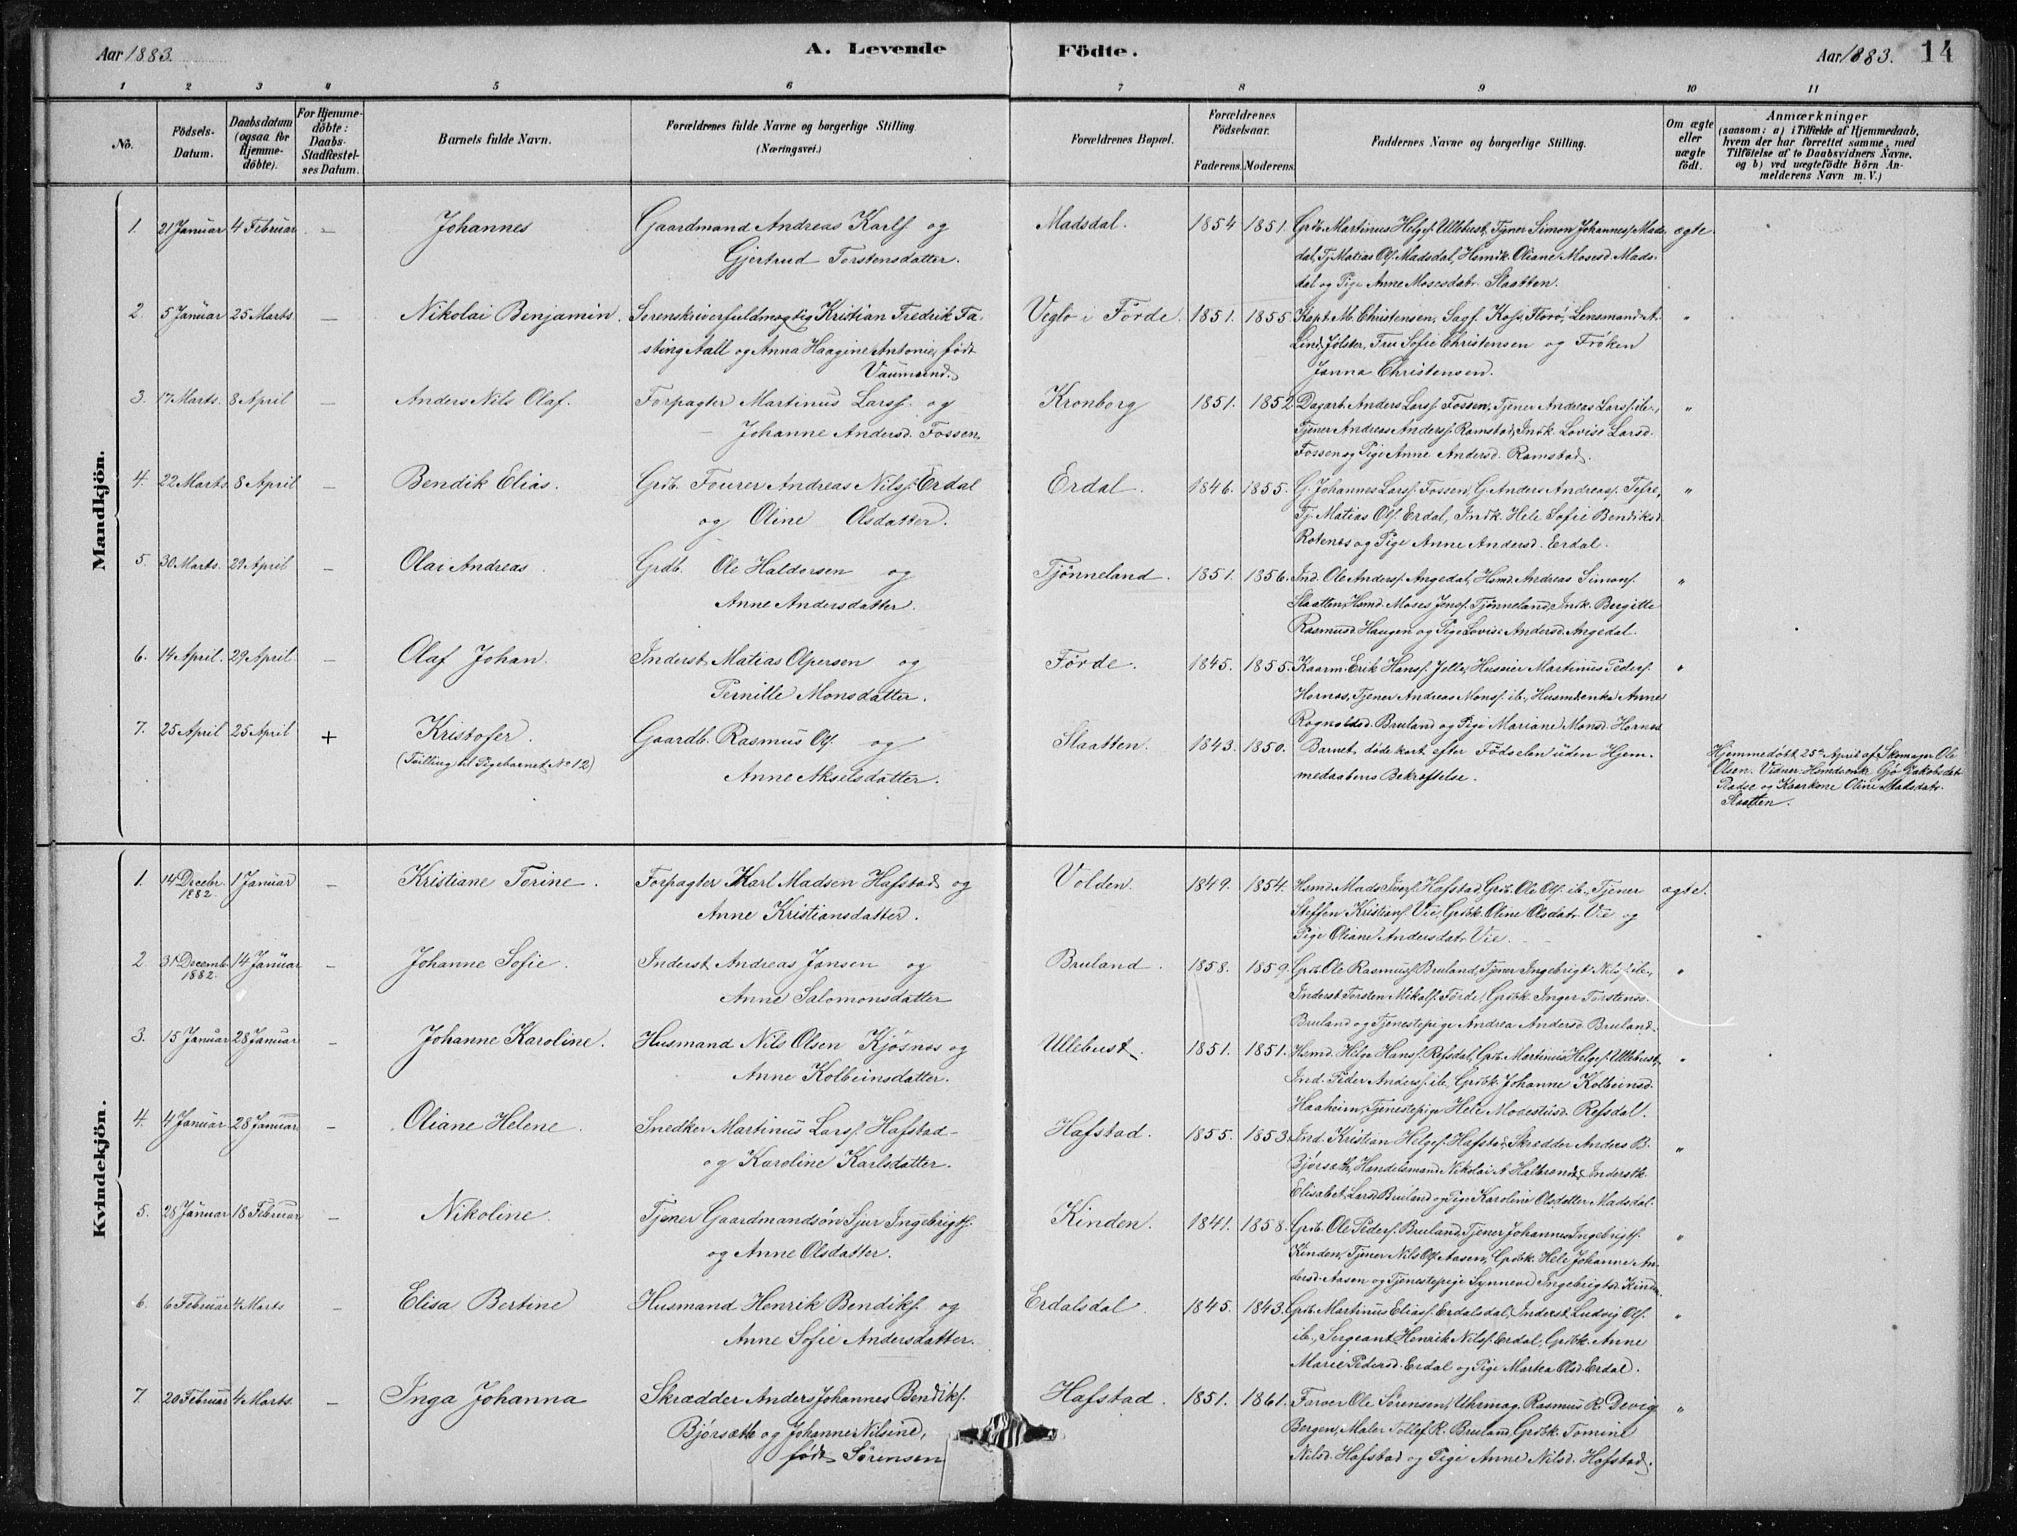 Aar 1883.
A. Levende
Födte.
Aar 1883.
14
1 2 3 4 5 6 7 8 9 10 11
No.
Födsels-Datum.
Daabsdatum (ogsaa for Hjemmedöbte).
For Hjemmedöbte: Daabs-Stadfæstelses Datum.
Barnets fulde Navn.
Forældrenes fulde Navne og borgerlige Stilling
(Næringsvei.)
Forældrenes Bopæl.
Forældrenes Födselsaar.
Faderens. Moderens.
Faddernes Navne og borgerlige Stilling.
Om ægte eller uægte födt.
Anmærkninger
(saasom: a) i Tilfælde af Hjemmedaab, hvem der har forrettet samme, med Tilföielse af to Daabsvidners Navne, og b) ved uægtefödte Börn Anmelderens Navn m. V.)
Mandkjön.
1. 21 Januar 4 Februar – Johannes Gaardmand Andreas Karls. og Madsdal. 1854 1851. Grdb. Martinus Helges. Ullebust, Tjener Simon Johanness. Mads- ægte.
Gjertrud Torstensdatter. dal, Tj. Matias Ols. Madsdal, Hsmdk. Oliane Mosesd. Mads-
dal og Pige Anne Mosesdatr. Slaatten.
2. 5 Januar 25 Marts – Nikolai Benjamin. Sorenskriverfuldmægtig Kristian Fredrik Fa- Veglo i Förde. 1851. 1855. Kapt. M. Christensen, Sagf. Koss, Florö, Lensmand A. "
sting Aall og Anna Haagine Antonie, født Lind, Jølster, Fru Sofie Christensen og Frøken
Vaumund. Janna Christensen.
3. 17 Marts. 8 April – Anders Nils Olaf. Forpagter Martinus Larss. og Kronborg 1851. 1852. Dagarb. Anders Larss. Fossen, Tjener Andreas Larss. ib., "
Johanne Andersd. Fossen. Tjener Andreas Anderss. Ramstad, Indk. Lovise Larsd.
Fossen og Pige Anne Andersd. Ramstad.
4. 22 Marts 8 April – Bendik Elias. Grdb. Fourer Andreas Nilss. Erdal Erdal. 1846. 1855. G. Johannes Larss. Fossen, G. Anders Andreass. Tefre, "
og Oline Olsdatter. Tj. Matias Ols. Erdal, Indk. Hele Sofie Bendiksd.
Rotenes og Pige Anne Andersd. Erdal.
5. 30 Marts. 29 April – Olai Andreas. Grdb. Ole Haldorsen og Tjønneland. 1851. 1856. Ind. Ole Anderss. Angedal, Hsmd. Andreas Simons. "
Anne Andersdatter. Slaatten, Hsmd. Moses Jenss. Tjønneland, Indk. Bergitte
Rasmusd. Haugen og Pige Lovise Andersd. Angedal.
6. 14 April. 29 April. – Olaf Johan. Inderst Matias Olpersen og Førde. 1845. 1855. Kaarm. Erik Hanss. Jelle, Huseier Martinus Peders. "
Pernille Monsdatter. Hornes, Tjener Andreas Monss. ib., Husmdenka Anne
Rognaldsd. Bruland og Pige Mariane Monsd. Hornes.
7. 25 April 25 April + Kristofer. Gaardb. Rasmus Ols. og Slaatten. 1843. 1850. Barnet døde kort efter Fødselen uden Hjem- Hjemmedøbt 25de April af Skomager Ole
(Tvilling til Pigebarnet No 12) Anne Akselsdatter. medaabens Bekræftelse. Olsen. Vidner: Hsmdsenk. Gjø Jakobsdatr.
Pladse og Kaarkone Oline Madsdatr.
Slaatten.
Kvindekjön.
1. 14 Decebr. 1882. 1 Januar – Kristiane Torine. Forpagter Karl Madsen Hafstad og Volden. 1849. 1854. Hsmd. Mads Ivers. Hafstad, Grdb. Ole Ols. ib., Tjener ægte.
Anne Kristiansdatter. Steffen Kristians. Vie, Grdbk. Oline Olsdatr. Vie og
Pige Oliane Andersdatr. Vie.
2. 31 Decemb. 1882. 14 Januar – Johanne Sofie. Inderst Andreas Jansen og Bruland. 1858. 1859. Grdb. Ole Rasmuss. Bruland, Tjener Ingebrigt Nilss. ib., "
Anne Salomonsdatter Inderst Torsten Mikals. Förde, Grdbk. Inger Torstensd.
Bruland og Tjenestepige Andrea Andersd. Bruland.
3. 15 Januar 28 Januar – Johanne Karoline. Husmand Nils Olsen Kjøsnes og Ullebust. 1851. 1851. Hsmd. Helge Hanss. Refsdal, Grdb. Martinus Helges. Ullebust, "
Anne Kolbeinsdatter. Ind. Peder Anderss. ib., Grdbk. Johanne Kolbeinsd.
Haaheim, Tjenestepige Hele Modestusd. Refsdal.
4. 4 Januar 28 Januar – Oliane Helene. Snedker Martinus Larss. Hafstad Hafstad. 1855. 1853. Ind. Kristian Helges. Hafstad, Skrædder Anders B. "
og Karoline Karlsdatter. Bjørsæth, Handelsmand Nikolai A. Halbrend, Inderstk.
Elisabet Larsd. Bruland og Pige Karoline Olsdatter Madsdal.
5. 28 Januar 18 Februar – Nikoline. Tjener Gaardmandsøn Sjur Ingebrigts. Kinden. 1841. 1858. Grdb. Ole Peders. Bruland, Tjener Johannes Ingebrigts. "
og Anne Olsdatter. Kinden, Tjener Nils Ols. Aasen, Grdbk. Hele Johanne An-
dersd. Aasen og Tjenestepige Synneve Ingebrigtsd. Kinden.
6. 6 Februar 4 Marts – Elisa Bertine Husmand Henrik Bendiks. og Erdalsdal. 1845. 1843. Grdb. Martinus Eliass. Erdalsdal, Inderst Ludvig Ols. "
Anne Sofie Andersdatter. ib., Sergeant Henrik Nilss. Erdal, Grdbk. Anne
Marie Pedersd. Erdal og Pige Martea Olsd. Erdal.
7. 20 Februar 4 Marts. – Inga Johanna Skrædder Anders Johannes Bendiks. Hafstad. 1851. 1861. Farver Ole Sørensen, Uhrmag. Rasmus R. Devig "
Bjørsæth og Johanne Nilsine, Bergen, Maler Tollef R. Bruland, Grdbk. Tomine
født Sørensen Nilsd. Hafstad og Pige Anne Nilsd. Hafstad.